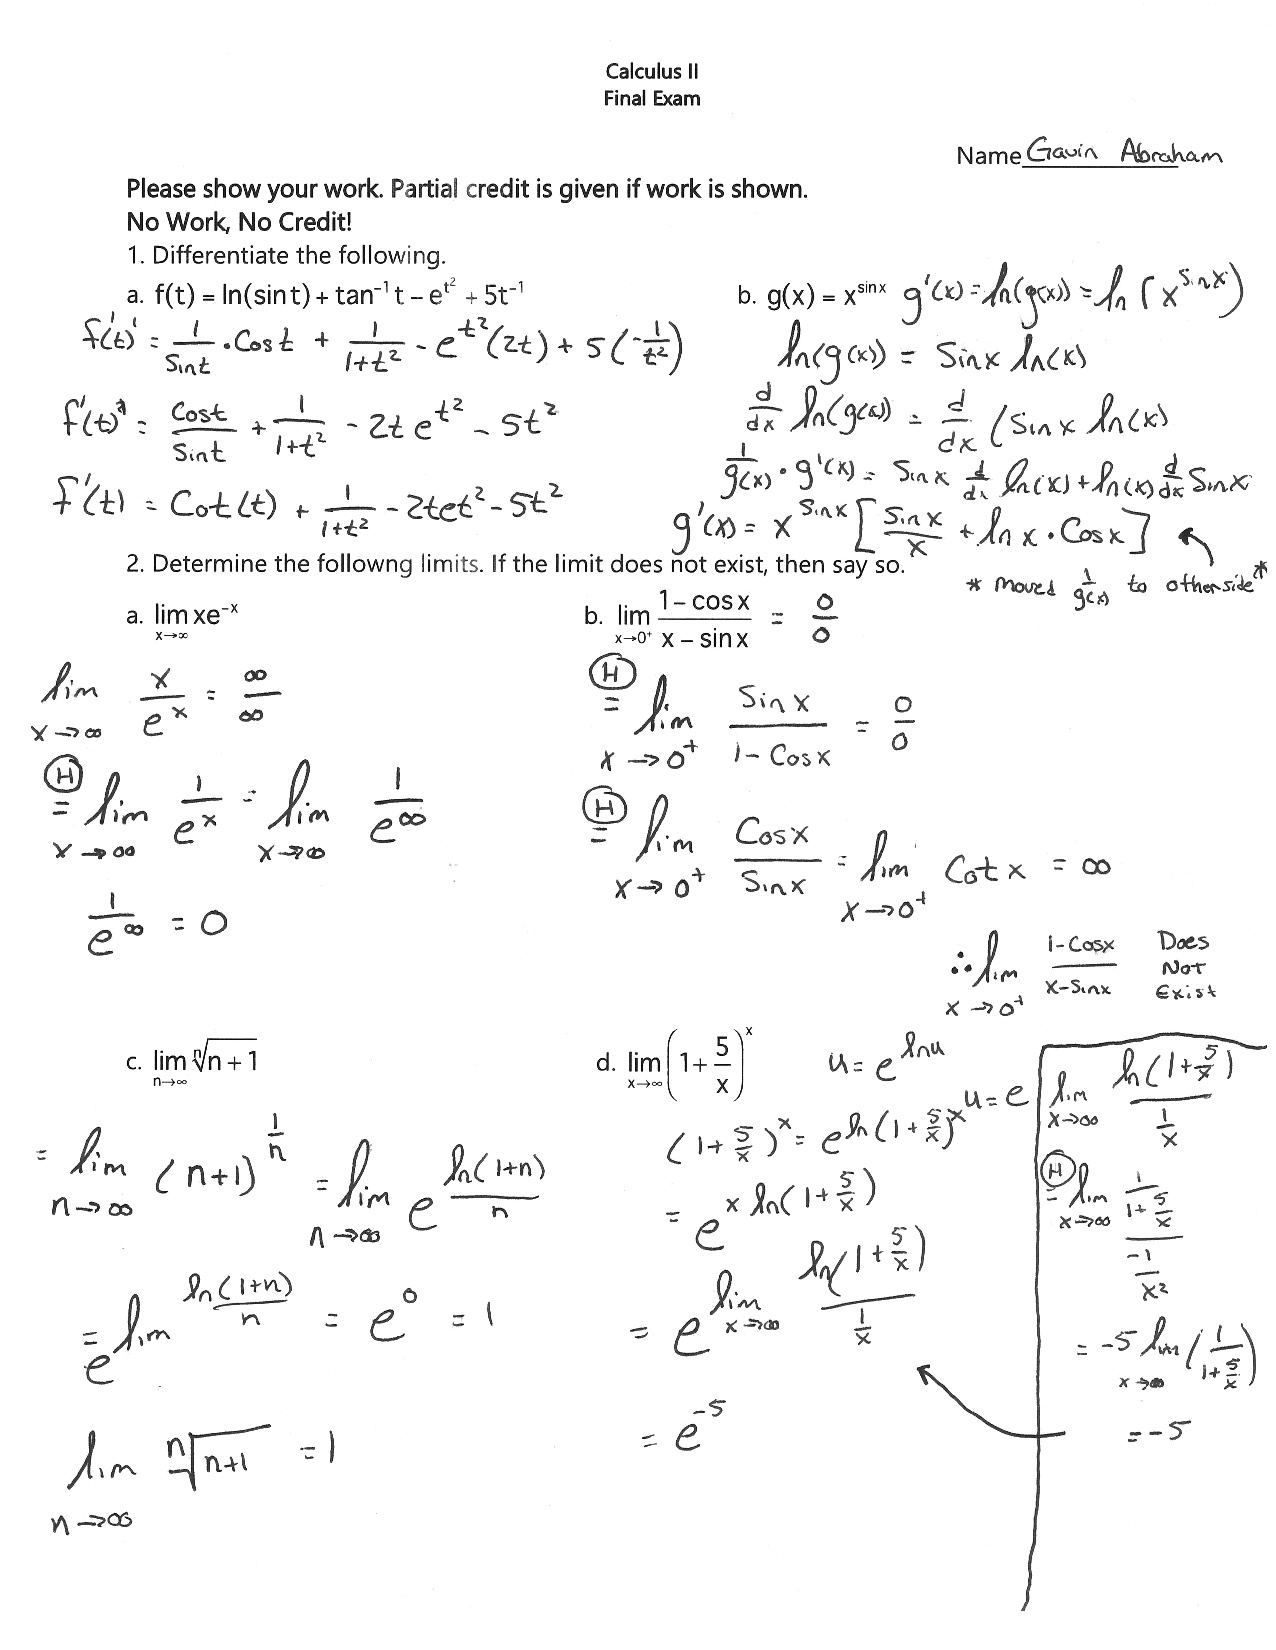 Calculus II
Final Exam
Name Gavin Abraham
Please show your work. Partial credit is given if work is shown.
No Work, No Credit!
1. Differentiate the following.
a. f(t) = ln(sin t) + tan⁻¹ t – e^(t²) + 5t⁻¹
f'(t)' = 1/Sint · Cos t + 1/(1+t²) - e^(t²)(2t) + 5(-1/t²)
f'(t) = Cost/Sint + 1/(1+t²) - 2t e^(t²) - 5t²
f'(t) = Cot(t) + 1/(1+t²) - 2tet² - 5t²
b. g(x) = x^(sin x) g'(x) = ln(g(x)) = ln(x^(sinx))
ln(g(x)) = Sinx ln(x)
d/dx ln(g(x)) = d/dx (Sin x ln(x)
1/g(x) · g'(x) = Sinx d/dx ln(x) + ln(x) d/dx Sinx
g'(x) = x^(Sinx) [Sinx/x + ln x · Cosx]
* moved 1/g(x) to otherside *
2. Determine the followng limits. If the limit does not exist, then say so.
a. lim x→∞ xe^(-x)
lim x→∞ x/e^x = ∞/∞
(H) = lim x→∞ 1/e^x = lim x→∞ 1/e^∞
1/e^∞ = 0
b. lim x→0⁺ (1 – cos x)/(x – sin x) = 0/0
(H) = lim x→0⁺ Sin x/(1 - Cosx) = 0/0
(H) = lim x→0⁺ Cosx/Sinx = lim x→0⁺ Cot x = ∞
∴ lim x→0⁺ (1-Cosx)/(x-Sinx) Does Not Exist
c. lim n→∞ ⁿ√(n+1)
= lim n→∞ (n+1)^(1/n) = lim n→∞ e^(ln(1+n)/n)
= e^(lim ln(1+n)/n) = e^0 = 1
lim n→∞ ⁿ√(n+1) = 1
d. lim x→∞ (1 + 5/x)^x u = e^(lnu)
u = e
(1 + 5/x)^x = e^(ln(1+5/x)^x)
= e^(x ln(1+5/x))
= e^(lim x→∞ ln(1+5/x)/(1/x))
= e^(-5)
lim x→∞ ln(1+5/x)/(1/x)
(H) = lim x→∞ (1/(1+5/x))/(-1/x²)
= -5 lim x→∞ (1/(1+5/x))
= -5